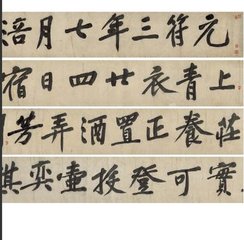 元符三年七月涪
上青衣廿四日宿
莊養正置酒弄芳
實可登投壺奕棋